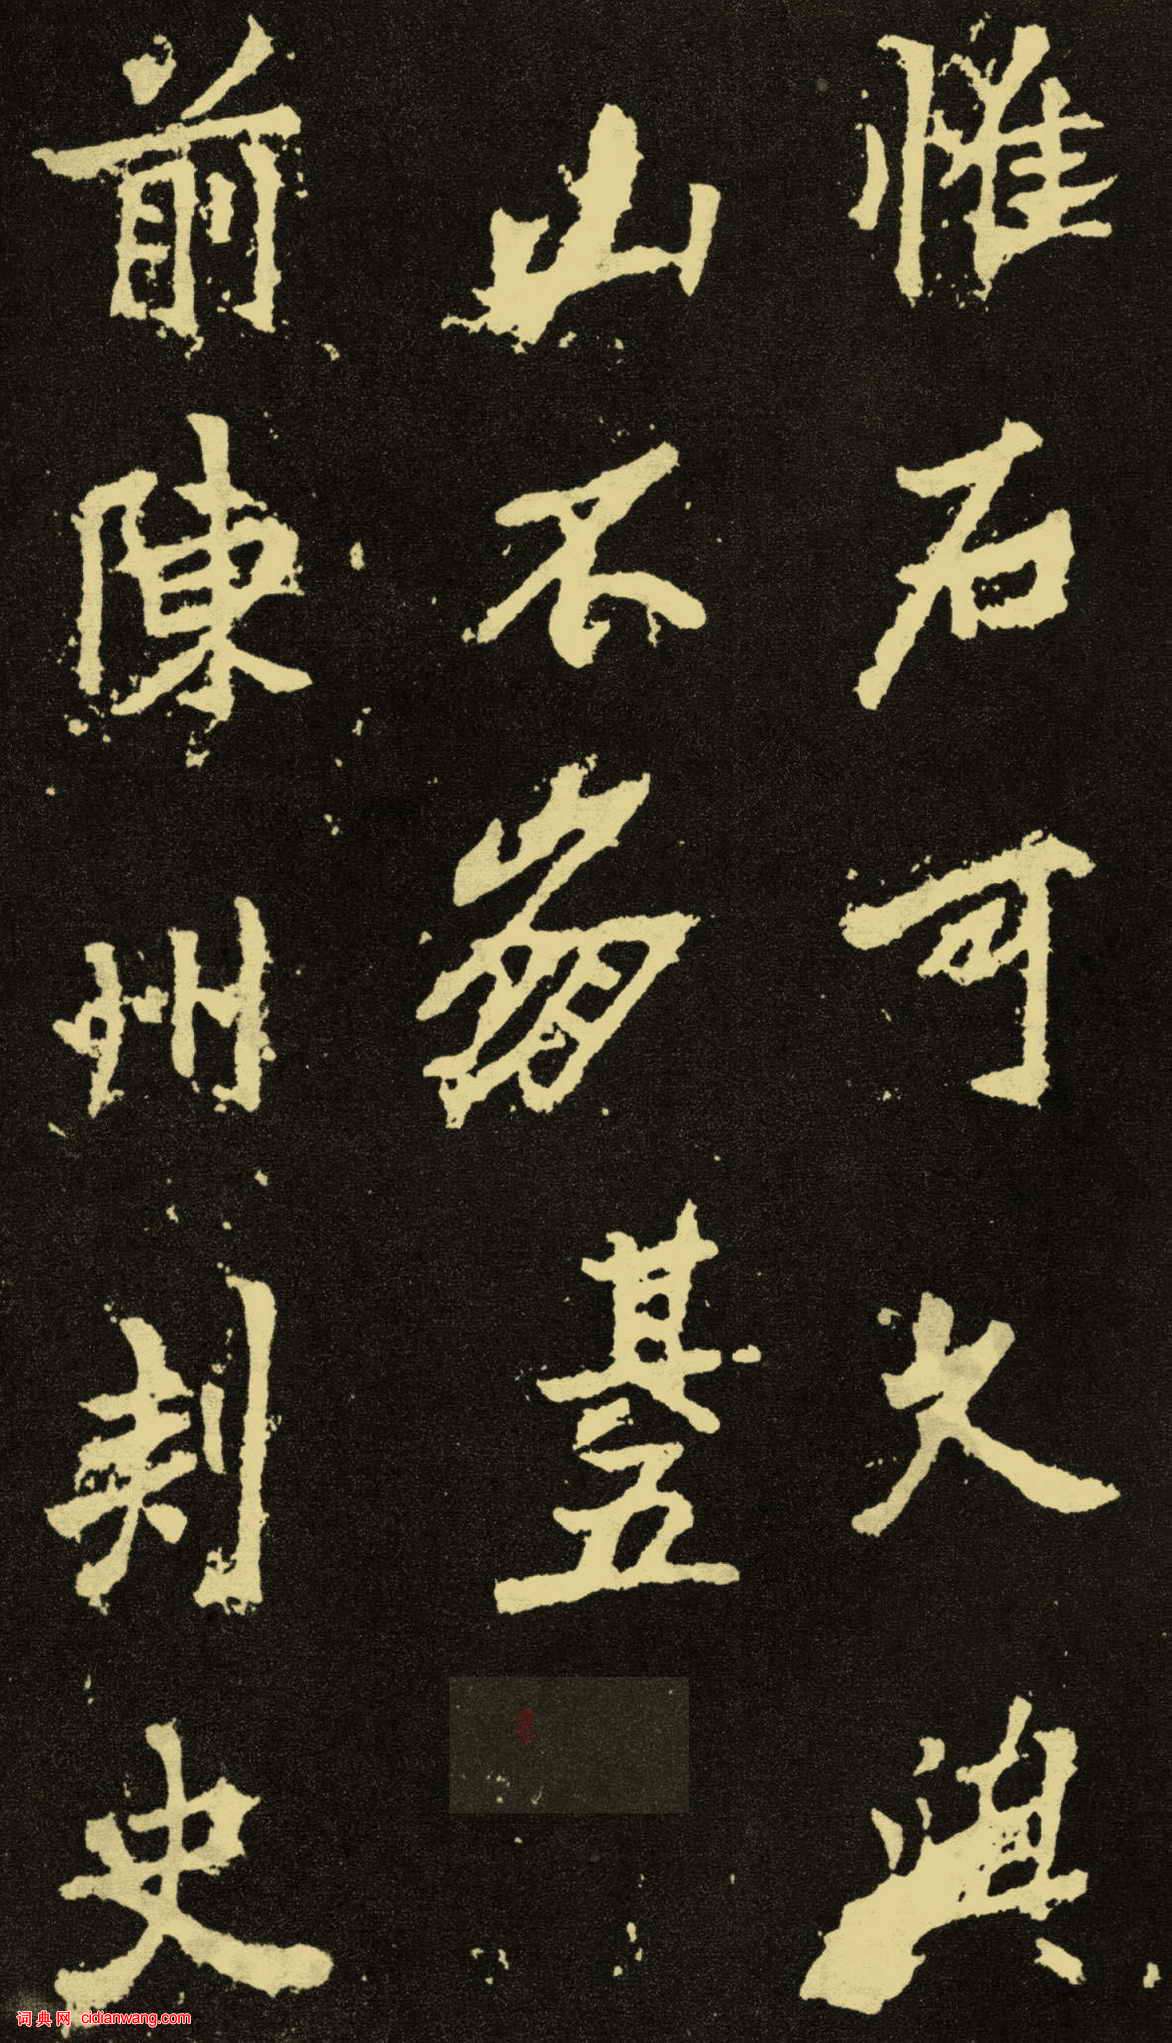 惟石可久與
山不崩其五
前陳州刺史
词典网 cidianwang.com